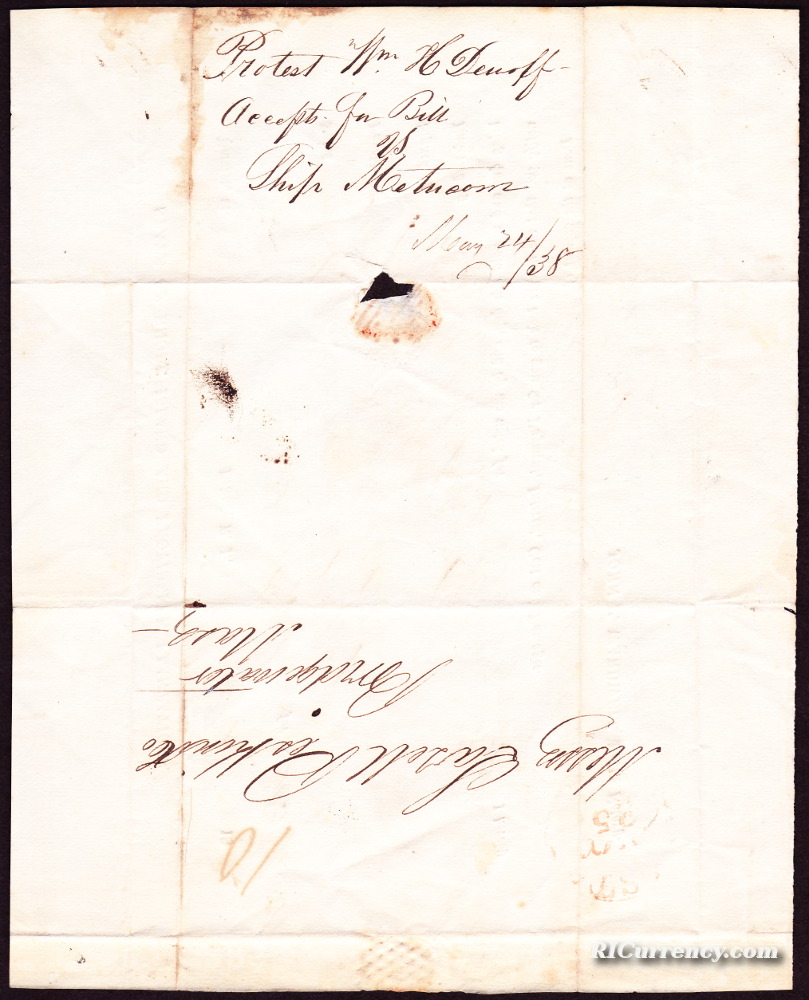 Protest Wm H Denoff
Accepts. for Bill
vs
Ship Metacom
May 24/38
Messrs Lazell Perkins & Co
Bridgewater
Mass
10
25
RICurrency.com